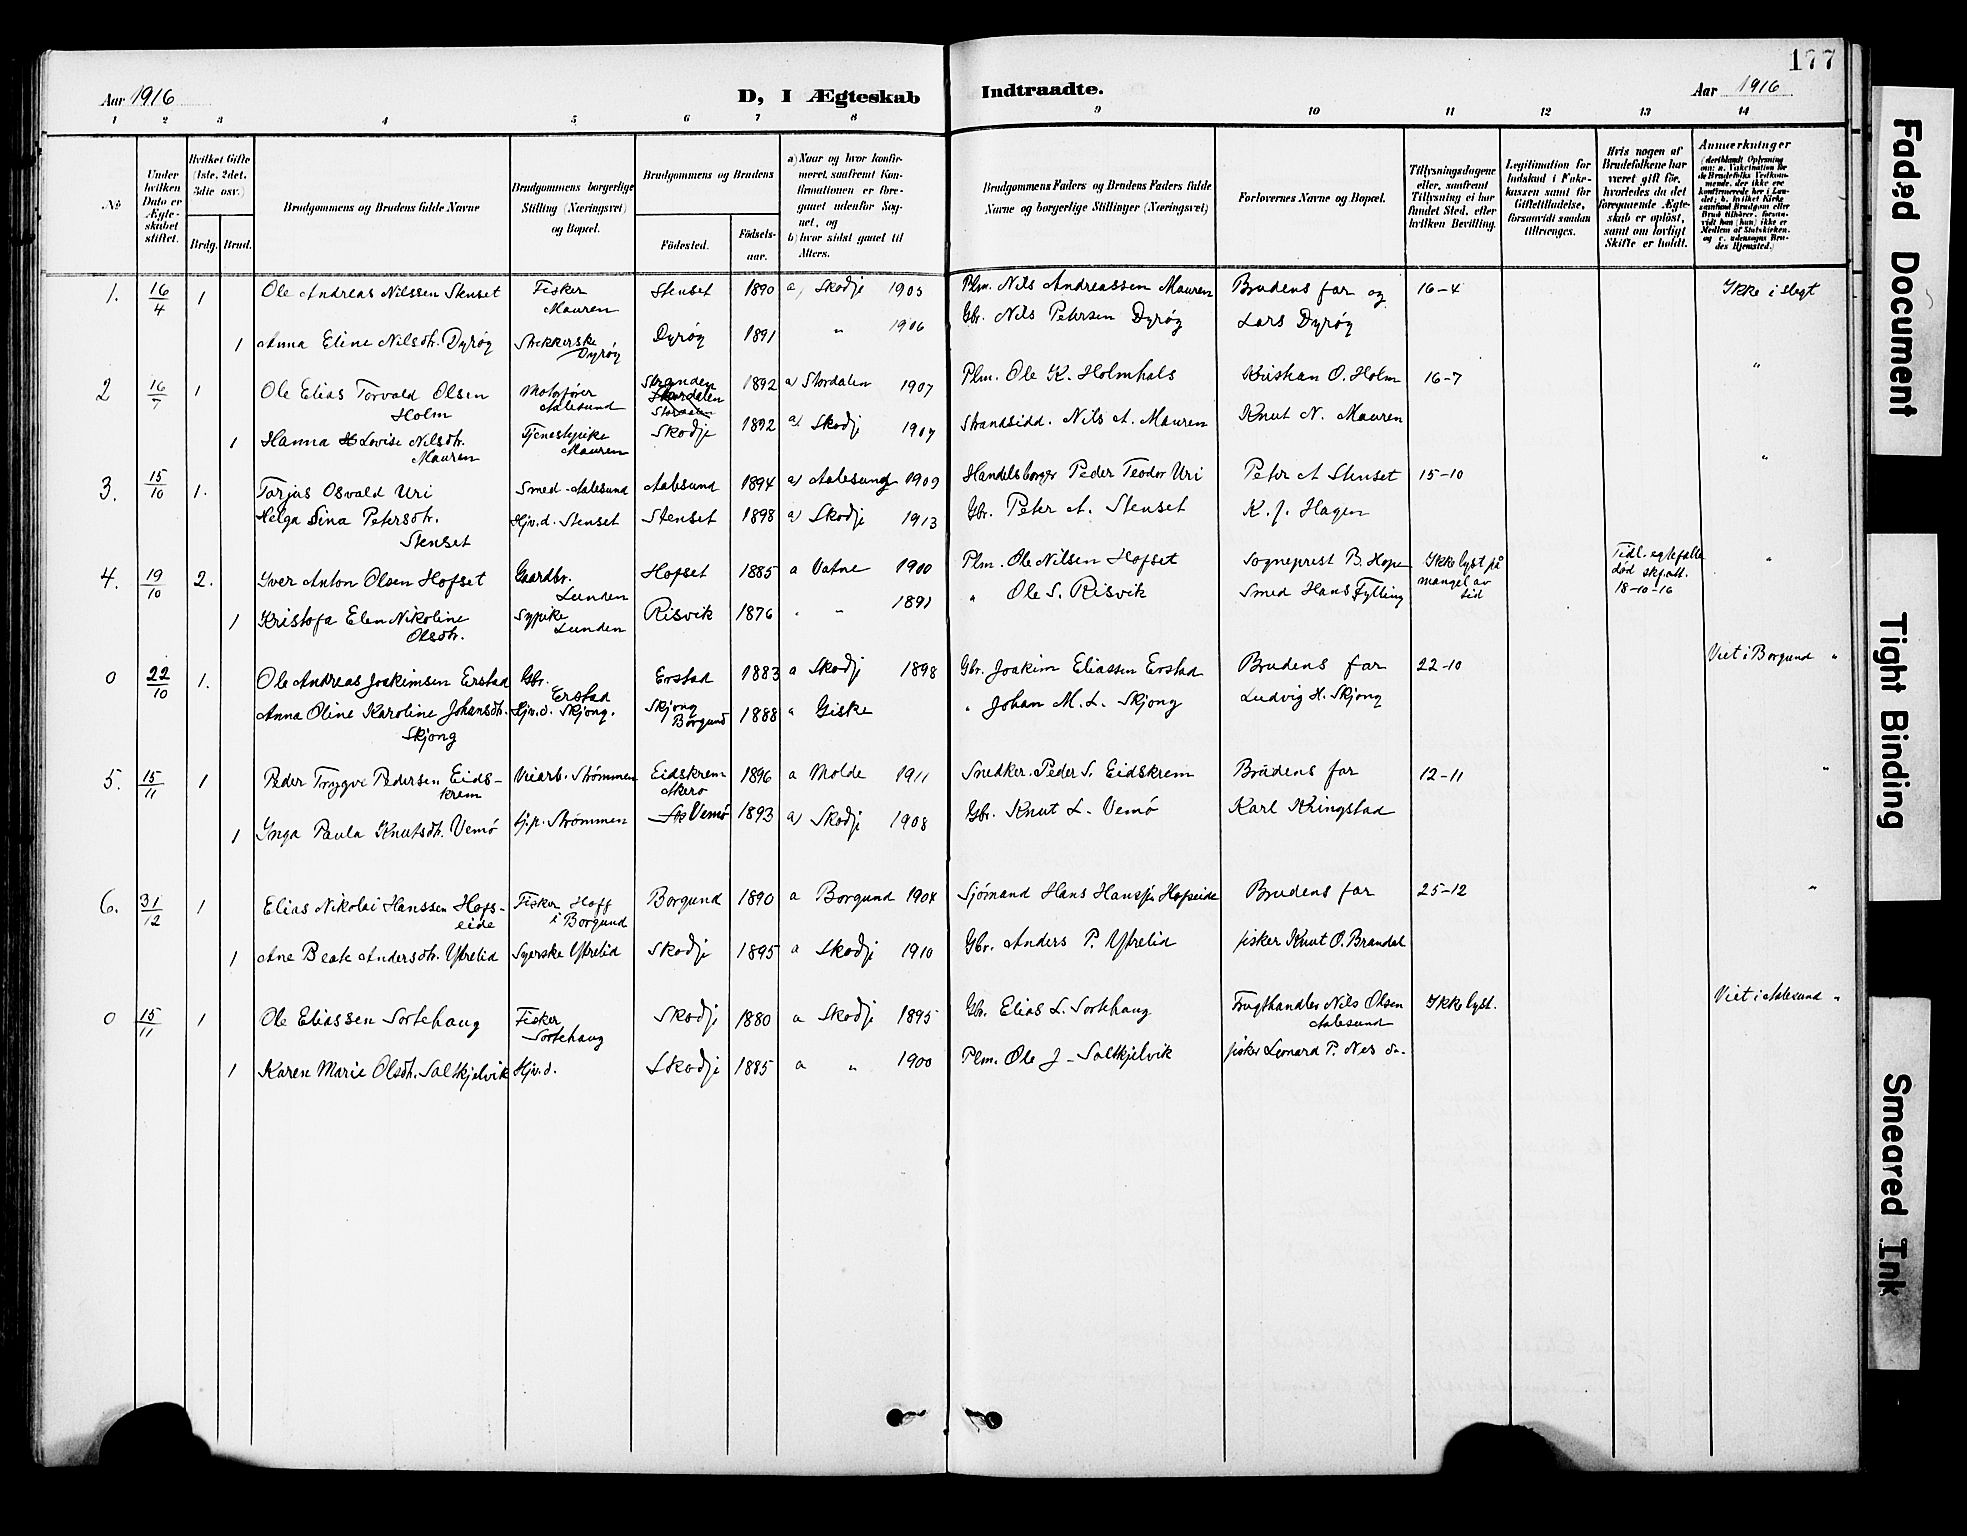 177
Aar 1916
D, I Ægteskab
Indtraadte.
Aar 1916
1 2 3 4 5 6 7 8 9 10 11 12 13 14
№
Under hvilken Dato er Ægteskabet stiftet.
Hvilket Gifte (1ste, 2det, 3die osv.)
Brdg. Brud.
Brudgommens og Brudens fulde Navne
Brudgommens borgerlige Stilling (Næringsvei) og Bopæl.
Brudgommens og Brudens
Födested.
Födsels-aar.
a) Naar og hvor konfirmeret, saafremt Konfirmationen er foregaaet udenfor Sognet, og
b) hvor sidst gaaet til Alters.
Brudgommens Faders og Brudens Faders fulde Navne og borgerlige Stillinger (Næringsvei)
Forlovernes Navne og Bopæl.
Tillysningsdagene eller, saafremt Tillysning ei har fundet Sted, efter hvilken Bevilling.
Legitimation for Indskud i Enkekassen samt for Giftetilladelse, forsaavidt saadan tiltrænges.
Hvis nogen af Brudefolkene har været gift før, hvorledes da det foregaaende Ægteskab er oplöst, samt om lovligt Skifte er holdt.
Anmærkninger
1. 16/4 1 Ole Andreas Nilssen Stenset Fisker Mauren Stenset 1890 a) Skodje 1905 Plm. Nils Andreassen Mauren Brudens far og 16-4 Ikke i slegt
1 Anna Eline Nilsdtr. Dyrøy Strekkerske Dyrøy Dyrøy 1891 " 1906 Gbr. Nils Petersen Dyrøy Lars Dyrøy
2 16/7 1 Ole Elias Torvald Olsen Holm Motorfører Aalesund Stranden Stordalen 1892 a) Stordalen 1907 Plm. Ole K. Holmhals Kristian O. Holm 16-7 "
1 Hanna Lovise Nilsdtr. Mauren Tjenestepike Mauren Skodje 1892 a) Skodje 1907 Strandsidd. Nils A. Mauren Knut N. Mauren
3. 15/10 1. Torjus Osvald Uri Smed Aalesund Aalesund 1894 a) Aalesund 1909 Handelsborger Peder Teodor Uri Peter A Stenset 15-10 "
Helga Sina Petersdtr. Stenset Hjv.d. Stenset Stenset 1898 a) Skodje 1913 Gbr. Peter A. Stenset K. J. Hagen
4. 19/10 2. Yver Anton Olsen Hofset Gaardbr. Lunden Hofset 1885 a Vatne 1900 Plm. Ole Nilsen Hofset Sogneprest B. Hope Ikke lyst på mangel av tid Tidl. egtefælle død skf.att. 18-10-16 "
1 Kristofa Elen Nikoline Olsdtr. Sypike Lunden Risvik 1876 " " 1891 " Ole S. Risvik Smed Hans Fylling
0 22/10 1. Ole Andreas Joakimsen Erstad Gbr. Erstad Erstad 1883 a Skodje 1898 Gbr. Joakim Eliassen Erstad Brudens far 22-10 Viet i Borgund "
Anna Oline Karoline Johansdtr. Skjong Hjv.d. Skjong. Skjong Borgund 1888 " Giske " Johan M. L. Skjong Ludvig H. Skjong
5. 15/11 1 Peder Trygve Pedersen Eidskrem Veiarb. Strømmen Eidskrem Akerø 1896 a Molde 1911 Snedker. Peder S. Eidskrem Brudens far 12-11 "
1 Ynga Paula Knutsdtr. Vemö tj.p. Strømmen Vemö 1893 a) Skodje 1908 Gbr. Knut L. Vemö Karl Kringstad
6. 31/12 1 Elias Nikolai Hanssen Hofseide Fisker Hoff i Borgund Borgund 1890 a Borgund 1904 Sjømand Hans Hanssen Hofseide Brudens far 25-12 "
1 Ane Beate Andersdtr. Ytrelid Syerske Ytrelid Skodje 1895 a Skodje 1910 Gbr. Anders P. Ytrelid fisker Knut O. Brandal
0 15/11 1 Ole Eliassen Sortehaug Fisker Sortehaug Skodje 1880 a Skodje 1895 Gbr. Elias L. Sortehaug Frugthandler Nils Olsen Aalesund Ikke lyst. Viet i Aalesund "
1 Karen Marie Olsdtr. Saltkjelvik Hjv.d. Skodje 1885 a " 1900 Plm. Ole J. Saltkjelvik fisker Leonard P. Nes do.
Faded Document
Tight Binding
Smeared Ink